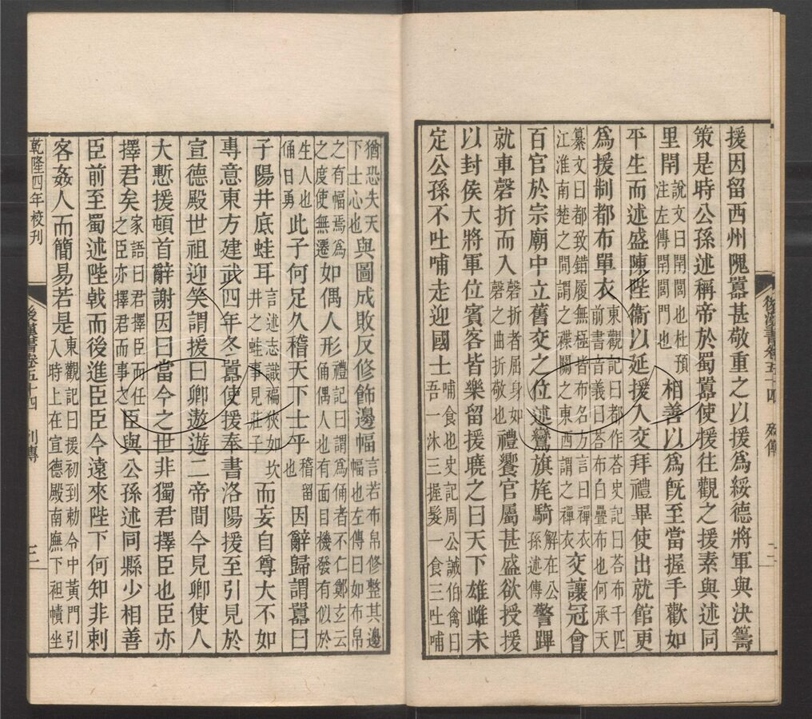 援因留西州隗囂甚敬重之以援爲綏德將軍與決籌
策是時公孫述稱帝於蜀囂使援往觀之援素與述同
里閈說文曰閈閭也杜預注左傳閈閎門也相善以爲旣至當握手歡如
平生而述盛陳陛衞以延援入交拜禮畢使出就館更
爲援制都布單衣東觀記曰都作荅史記曰荅布千匹前書音義曰荅布白疊布也何承天
纂文曰都致錯履無極皆布名方言曰襌衣江淮南楚之閒謂之褋關之東西謂之襌衣交讓冠會
百官於宗廟中立舊交之位述鸞旗旄騎解在公孫述傳警蹕
就車磬折而入磬折者屈身如磬之曲折敬也禮饗官屬甚盛欲授援
以封侯大將軍位賓客皆樂留援曉之曰天下雄雌未
定公孫不吐哺走迎國士哺食也史記周公誡伯禽曰吾一沐三握髮一食三吐哺
猶恐失天下士心也與圖成敗反修飾邊幅言若布帛修整其邊幅也左傳曰如布帛
之有幅焉爲之度使無遷如偶人形禮記曰謂爲俑者不仁鄭玄云俑偶人也有面目機發有似於
生人也俑曰勇此子何足久稽天下士乎稽留也因辭歸謂囂曰
子陽井底蛙耳言述志識褊狹如坎井之蛙事見莊子而妄自尊大不如
專意東方建武四年冬囂使援奉書洛陽援至引見於
宣德殿世祖迎笑謂援曰卿遨遊二帝間今見卿使人
大慙援頓首辭謝因曰當今之世非獨君擇臣也臣亦
擇君矣家語曰君擇臣而任之臣亦擇君而事之臣與公孫述同縣少相善
臣前至蜀述陛戟而後進臣臣今遠來陛下何知非刺
客姦人而簡易若是東觀記曰援初到勅令中黃門引入時上在宣德殿南廡下袒幘坐
乾隆四年校刊
後漢書卷五十四
列傳